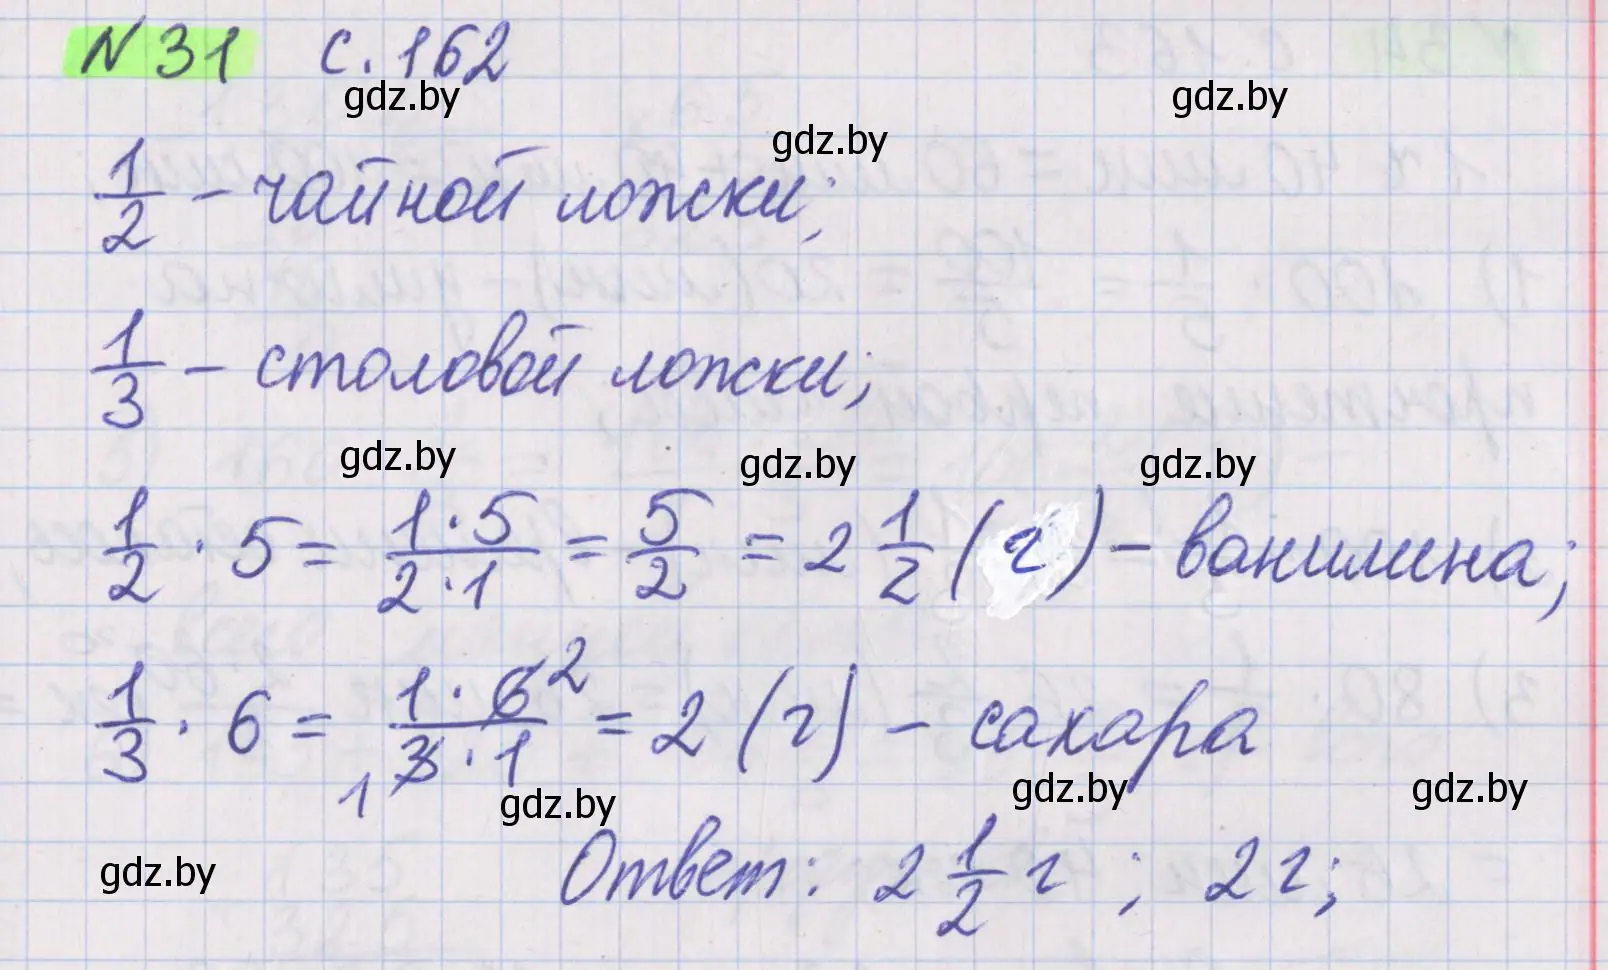 N 31 с. 162
gdz.by gdz.by
gdz.by
1/2 – чайной ложки;
1/3 – столовой ложки;
gdz.by gdz.by gdz.by
1/2 · 5 = (1·5)/(2·1) = 5/2 = 2 1/2 (г) – ванилина;
1/3 · 6 = (1·6 2)/(1 3·1) = 2 (г) – сахара
gdz.by gdz.by gdz.by
Ответ: 2 1/2 г ; 2 г;
gdz.by